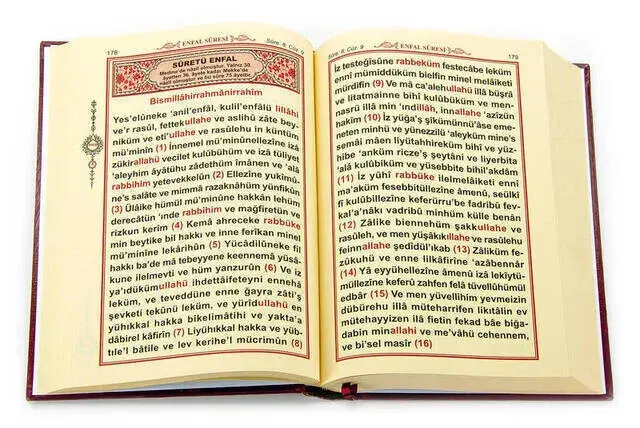 178
ENFAL SÛRESİ
Sûre: 8, Cüz: 9
SÛRETÜ ENFAL
Medine'de nâzil olmuştur. Yalnız 30.
âyetten 36. âyete kadar Mekke'de
nâzil olmuştur ve bu sûre 75 âyettir.
Bismillâhirrahmânirrahîm
Yes'elûneke 'anil'enfâl, kulil'enfâlü lillâhi
ve'r rasûl, fettekullahe ve aslihû zâte bey-
niküm ve etî'ullahe ve rasûlehu in küntüm
mü'minîn (1) İnnemel mü'minûnellezîne izâ
zükirallahü vecilet kulûbühüm ve izâ tüliyet
'aleyhim âyâtühu zâdethüm îmânen ve 'alâ
rabbihim yetevekkelûn (2) Ellezîne yukîmû-
ne's salâte ve mimmâ razaknâhüm yünfikûn
(3) Ülâike hümül mü'minûne hakkân lehüm
derecâtün 'ınde rabbihim ve mağfiretün ve
rizkun kerîm (4) Kemâ ahreceke rabbüke
min beytike bil hakkı ve inne ferîkan minel
mü'minîne lekârihûn (5) Yücâdilûneke fil
hakkı ba'de mâ tebeyyene keennemâ yüsâ-
kune ilelmevti ve hüm yanzurûn (6) Ve iz
ya'ıdükümullahü ihdettâifeteyni ennehâ
leküm, ve teveddûne enne ğayra zâti'ş
şevketi tekûnü leküm, ve yürîdullahü en
yühıkkal hakka bikelimâtihi ve yakta'a
dâbirel kâfirîn (7) Liyühıkkal hakka ve yüb-
tıle'l bâtile ve lev kerihe'l mücrimûn (8)
Sûre: 8, Cüz: 9
ENFAL SÛRESİ
179
İz testeğîsûne rabbeküm festecâbe leküm
ennî mümiddüküm bielfin minel melâiketi
mürdifîn (9) Ve mâ ca'alehullahü illâ büşrâ
ve litatmainne bihî kulûbüküm ve men-
nasrü illâ min 'ındillâh, innallahe 'azîzün
hakîm (10) İz yüğa'ş şikümünnü'âse eme-
neten minhü ve yünezzilü 'aleyküm mine's
semâi mâen liyütahhireküm bihî ve yüz-
hibe 'anküm ricze'ş şeytâni ve liyerbita
'alâ kulûbiküm ve yüsebbite bihil'akdâm
(11) İz yûhî rabbüke ilelmelâiketi ennî
ma'aküm fesebbitüllezîne âmenû, seülkî
fî kulûbillezîne keferürru'be fadribû fev-
kal'a'nâkı vadribû minhüm külle benân
(12) Zâlike biennehüm şakkullahe ve
rasûleh, ve men yüşâkıkıllahe ve rasûlehu
feinnallahe şedîdül'ıkab (13) Zâliküm fe-
zûkuhû ve enne lilkâfirîne 'azâbennâr
(14) Yâ eyyühellezîne âmenû izâ lekîytü-
müllezîne keferû zahfen felâ tüvellûhümül
edbâr (15) Ve men yüvellihim yevmeizin
dübürehu illâ müteharrifen likıtâlin ev
mütehayyizen ilâ fietin fekad bâe biğa-
dabin minallahi ve me'vâhü cehennem,
ve bi'sel masîr (16)